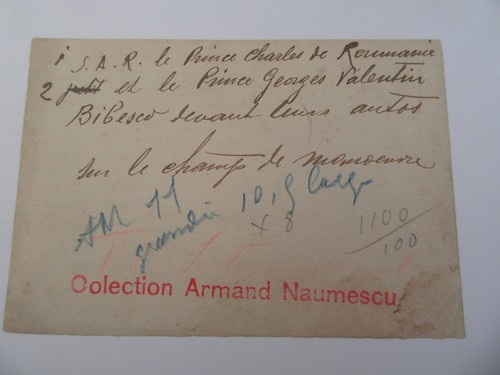 1 S.A.R. le Prince Charles de Roumanie
2 petit et le Prince Georges Valentin
Bibesco devant leurs autos
sur le champ de manoeuvre
AM 11
10,9 large
x 8
1100
100
Colection Armand Naumescu